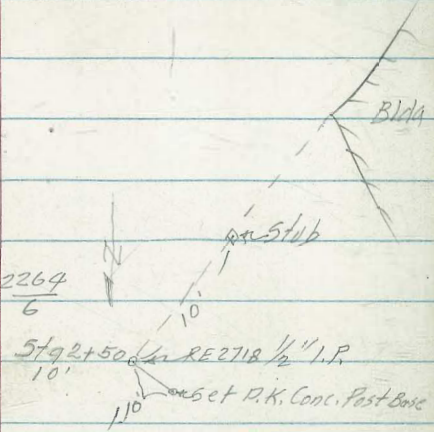 Bldg
Stub
2264
6
10'
Sta 2+50 RE2718 1/2" I.P.
10'
Set P.K. Conc. Post Base
10'